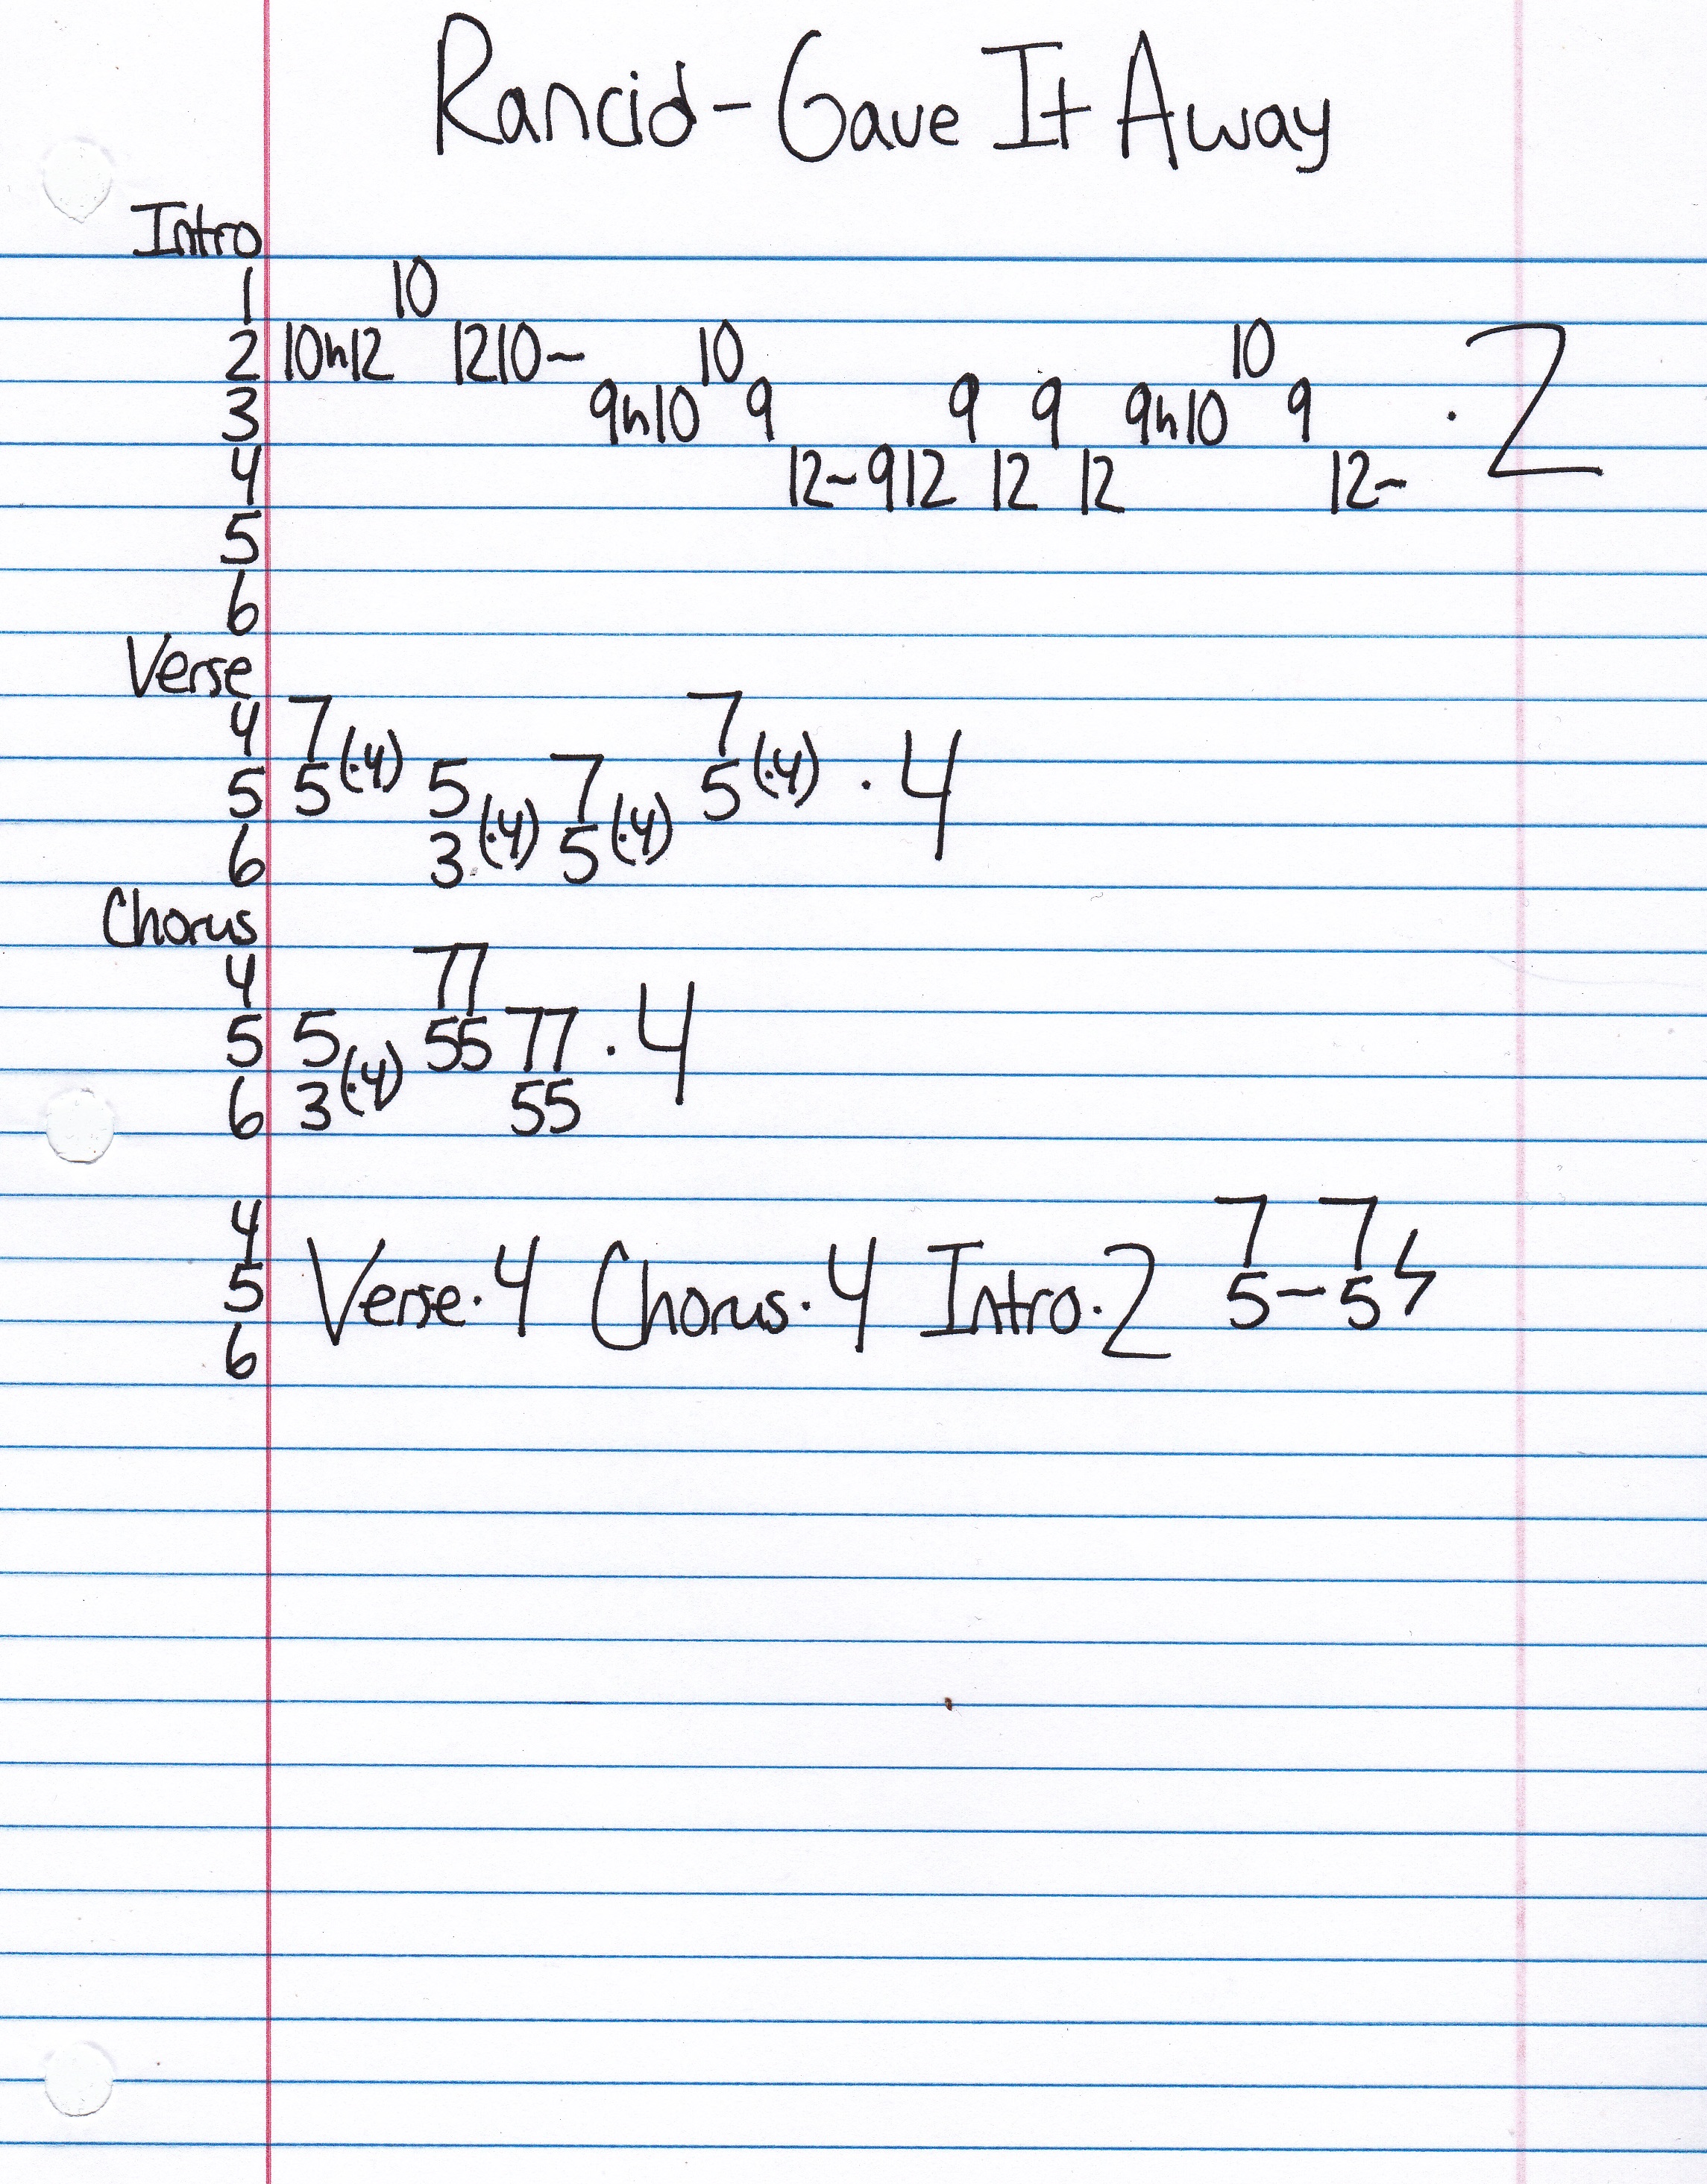 Rancid - Gave It Away
Intro
1 10
2 10h12 1210~ 10 10
3 9h10 9 9 9 9h10 9 · 2
4 12~912 12 12 12~
5
6
Verse
4 7 7
5 5(·4) 5 7 5(·4) · 4
6 3(·4) 5(·4)
Chorus
4 77
5 5 55 77 · 4
6 3(·4) 55
4 7 7
5 Verse·4 Chorus·4 Intro·2 5–5
6